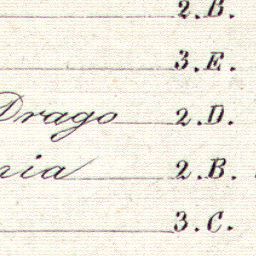 2.B.
3.E.
Drago 2.D.
nia 2.B.
3.C.